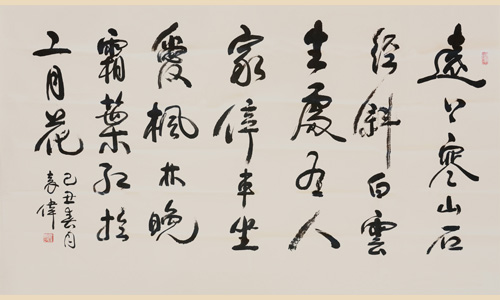 遠上寒山石
径斜白雲
生處有人
家停車坐
愛楓林晚
霜葉红於
二月花
己丑春月
袁偉